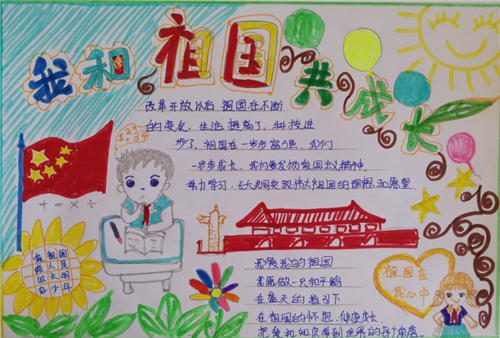 我和祖国共成长
改革开放以后 祖国在不断
的变化，生活提高了，科技进
步了，祖国在一步步富强，我们
一步步成长，我们要发扬爱国主义精神，
努力学习，长大后实现伟大祖国的理想和愿望
+ − × ÷
我爱我的祖国
我愿做一只和平鸽
在蓝天的指引下
在祖国的怀抱 健康成长
祖国在
我心中